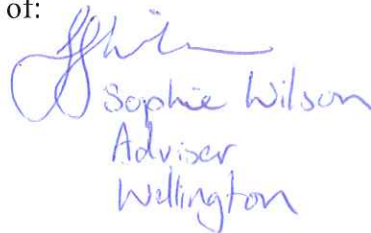 of:
Sophie Wilson
Adviser
Wellington